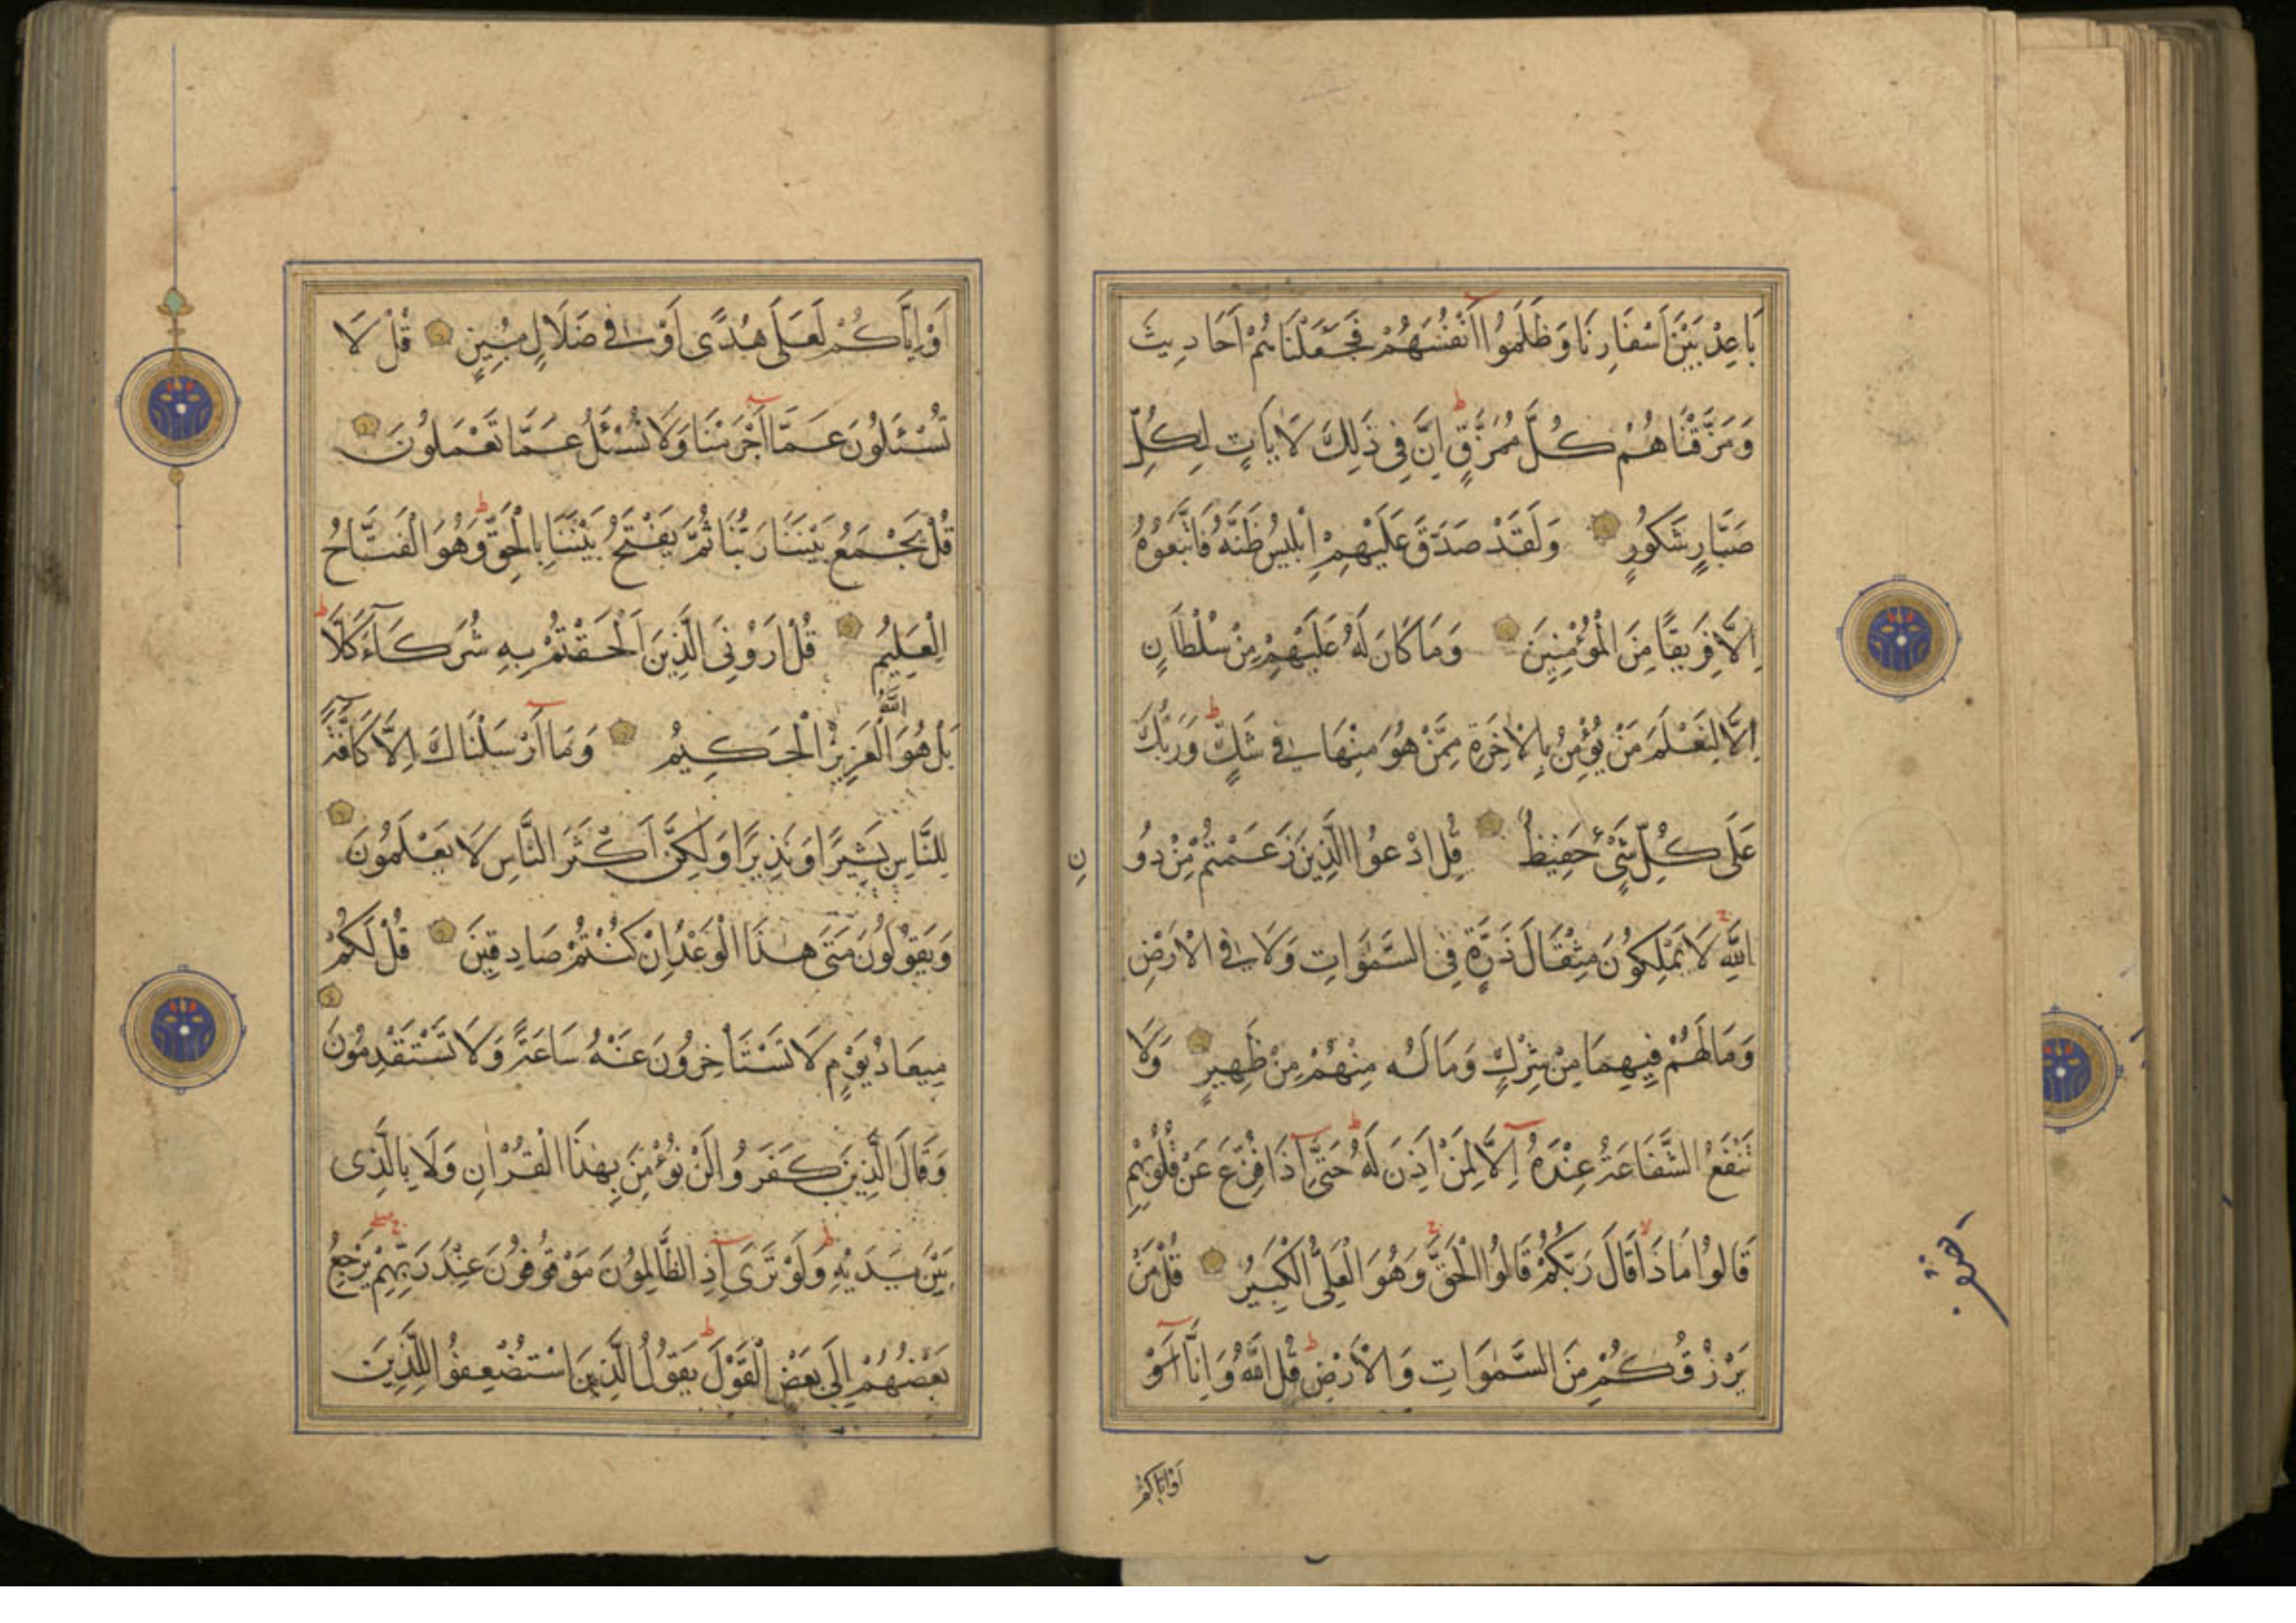 بَاعِدْ بَيْنَ اَسْفَارِنَا وَظَلَمُوا اَنْفُسَهُمْ فَجَعَلْنَاهُمْ اَحَادِيثَ
وَمَزَّقْنَاهُمْ كُلَّ مُمَزَّقٍ اِنَّ فِى ذٰلِكَ لَاٰيَاتٍ لِكُلِّ
صَبَّارٍ شَكُورٍ وَلَقَدْ صَدَّقَ عَلَيْهِمْ اِبْلِيسُ ظَنَّهُ فَاتَّبَعُوهُ
اِلَّا فَرِيقًا مِنَ الْمُؤْمِنِينَ وَمَا كَانَ لَهُ عَلَيْهِمْ مِنْ سُلْطَانٍ
اِلَّا لِنَعْلَمَ مَنْ يُؤْمِنُ بِالْاٰخِرَةِ مِمَّنْ هُوَ مِنْهَا فِى شَكٍّ وَرَبُّكَ
عَلٰى كُلِّ شَىْءٍ حَفِيظٌ قُلِ ادْعُوا الَّذِينَ زَعَمْتُمْ مِنْ دُو
نِ
اللّٰهِ لَا يَمْلِكُونَ مِثْقَالَ ذَرَّةٍ فِى السَّمٰوَاتِ وَلَا فِى الْاَرْضِ
وَمَا لَهُمْ فِيهِمَا مِنْ شِرْكٍ وَمَا لَهُ مِنْهُمْ مِنْ ظَهِيرٍ وَلَا
تَنْفَعُ الشَّفَاعَةُ عِنْدَهُ اِلَّا لِمَنْ اَذِنَ لَهُ حَتّٰى اِذَا فُزِّعَ عَنْ قُلُوبِهِمْ
قَالُوا مَاذَا قَالَ رَبُّكُمْ قَالُوا الْحَقَّ وَهُوَ الْعَلِىُّ الْكَبِيرُ قُلْ مَنْ
يَرْزُقُكُمْ مِنَ السَّمٰوَاتِ وَالْاَرْضِ قُلِ اللّٰهُ وَاِنَّا اَوْ
اَوْ اِيَّاكُمْ
اَوْ اِيَّاكُمْ لَعَلٰى هُدًى اَوْ فِى ضَلَالٍ مُبِينٍ قُلْ لَا
تُسْئَلُونَ عَمَّا اَجْرَمْنَا وَلَا نُسْئَلُ عَمَّا تَعْمَلُونَ
قُلْ يَجْمَعُ بَيْنَنَا رَبُّنَا ثُمَّ يَفْتَحُ بَيْنَنَا بِالْحَقِّ وَهُوَ الْفَتَّاحُ
الْعَلِيمُ قُلْ اَرُونِىَ الَّذِينَ اَلْحَقْتُمْ بِهِ شُرَكَاءَ كَلَّا
بَلْ هُوَ اللّٰهُ الْعَزِيزُ الْحَكِيمُ وَمَا اَرْسَلْنَاكَ اِلَّا كَافَّةً
لِلنَّاسِ بَشِيرًا وَنَذِيرًا وَلٰكِنَّ اَكْثَرَ النَّاسِ لَا يَعْلَمُونَ
وَيَقُولُونَ مَتٰى هٰذَا الْوَعْدُ اِنْ كُنْتُمْ صَادِقِينَ قُلْ لَكُمْ
مِيعَادُ يَوْمٍ لَا تَسْتَأْخِرُونَ عَنْهُ سَاعَةً وَلَا تَسْتَقْدِمُونَ
وَقَالَ الَّذِينَ كَفَرُوا لَنْ نُؤْمِنَ بِهٰذَا الْقُرْاٰنِ وَلَا بِالَّذِى
بَيْنَ يَدَيْهِ وَلَوْ تَرٰى اِذِ الظَّالِمُونَ مَوْقُوفُونَ عِنْدَ رَبِّهِمْ يَرْجِعُ
بَعْضُهُمْ اِلٰى بَعْضٍ الْقَوْلَ يَقُولُ الَّذِينَ اسْتُضْعِفُوا لِلَّذِينَ